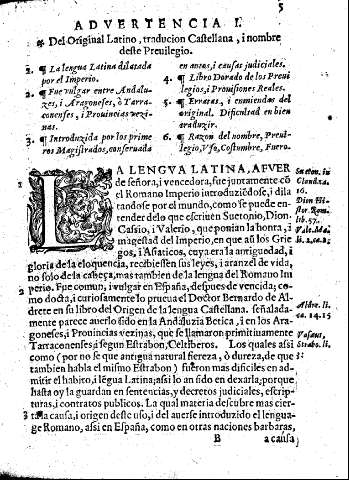 5
ADVERTENCIA I.
Del Original Latino, traducion Castellana, i nombre
deste Preuilegio.
1. ¶ La lengua Latina dilatada
por el Imperio.
2. ¶ Fue vulgar entre Andalu-
zes, i Aragoneses, ò Tarra-
conenses, i Prouincias vezi-
nas.
3. ¶ Introduzida por los prime
ros Magistrados, conseruada
en autos, i causas judiciales.
4. ¶ Libro Dorado de los Preui
legios, i Prouisiones Reales.
5. ¶ Erratas, i enmiendas del
original. Dificultad en bien
traduzir.
6. ¶ Razon del nombre, Preui-
legio, Vso, Costumbre, Fuero.
1 LA LENGVA LATINA, A FVER
de señora, i vencedora, fue juntamente cõ
el Romano Imperio introduziẽdose, i dila
tandose por el mundo, como se puede en-
tender de lo que escriuẽn Suetonio, Dion
Cassio, i Valerio, que ponian la honra, i
magestad del Imperio, en que aũ los Grie
gos, i Asiaticos, cuya era la antiguedad, i
gloria de la eloquencia, recibiessẽn sus leyes, i aranzel de vida,
no solo de la cabeça, mas tambien de la lengua del Romano Im
2 perio. Fue comun, i vulgar en España, despues de vencida; co-
mo docta, i curiosamente lo prueua el Doctor Bernardo de Al-
drete en su libro del Origen de la lengua Castellana. señalada-
mente parece auerlo sido en la Andaluzia Betica, i en los Arago-
neses, i Prouincias vezinas, que se llamaron primitiuamente
Tarraconenses, i segun Estrabon, Celtiberos. Los quales assi
como (por no se que antigua natural fiereza, ò dureza, de que
tambien habla el mismo Estrabon) fuerõn mas dificiles en ad-
mitir el habito, i lẽgua Latina; assi lo an sido en dexarla; porque
hasta oy la guardan en sentencias, y decretos judiciales, escrip-
turas, i contratos publicos. La qual materia descubre mas cier-
3 ta la causa, i origen deste vso, i del auerse introduzido el lengua-
ge Romano, assi en España, como en otras naciones barbaras,
B a causa
Sueton. in
Claud. ca.
16.
Dion Hi-
stor Rom.
lib. 57.
Vale. Ma.
li. 2. ca. 2.
Aldre. li.
1. ca. 14. 15
Vasaus,
Strabo. li.